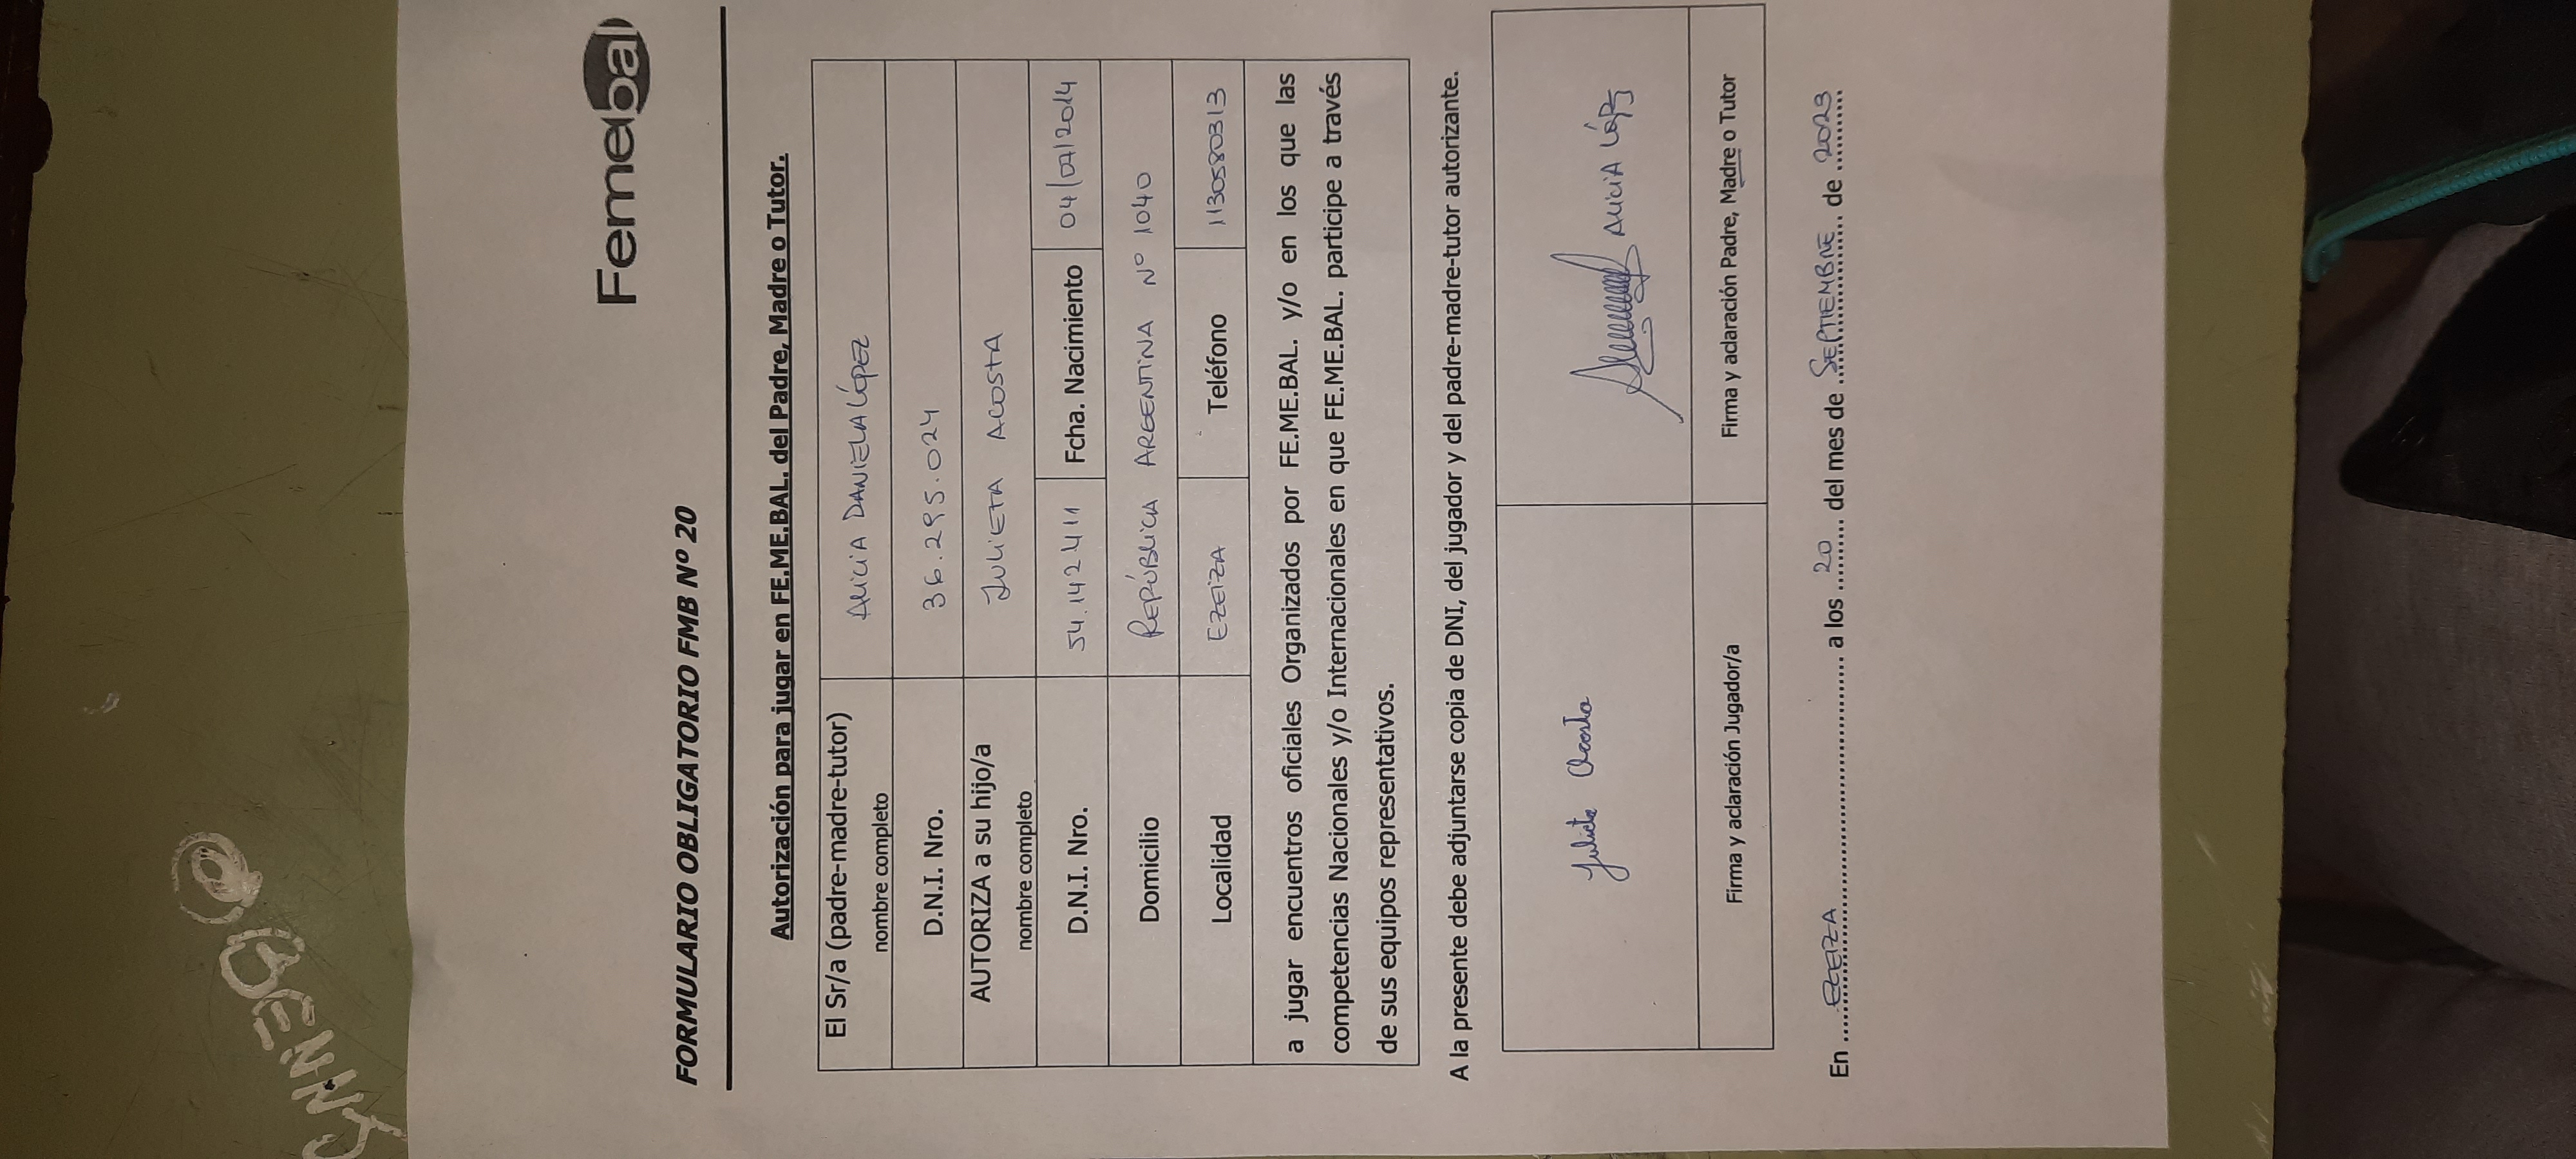 Femebal
FORMULARIO OBLIGATORIO FMB Nº 20
Autorización para jugar en FE.ME.BAL. del Padre, Madre o Tutor.
El Sr/a (padre-madre-tutor) nombre completo ALICIA DANIELA LÓPEZ
D.N.I. Nro. 36.295.024
AUTORIZA a su hijo/a nombre completo JULIETA ACOSTA
D.N.I. Nro. 54.142.411 Fcha. Nacimiento 04/07/2014
Domicilio REPÚBLICA ARGENTINA Nº 1040
Localidad EZEIZA Teléfono 1130580313
a jugar encuentros oficiales Organizados por FE.ME.BAL. y/o en los que las
competencias Nacionales y/o Internacionales en que FE.ME.BAL. participe a través
de sus equipos representativos.
A la presente debe adjuntarse copia de DNI, del jugador y del padre-madre-tutor autorizante.
Julieta Acosta ALICIA LÓPEZ
Firma y aclaración Jugador/a Firma y aclaración Padre, Madre o Tutor
En EZEIZA a los 20 del mes de SEPTIEMBRE de 2023